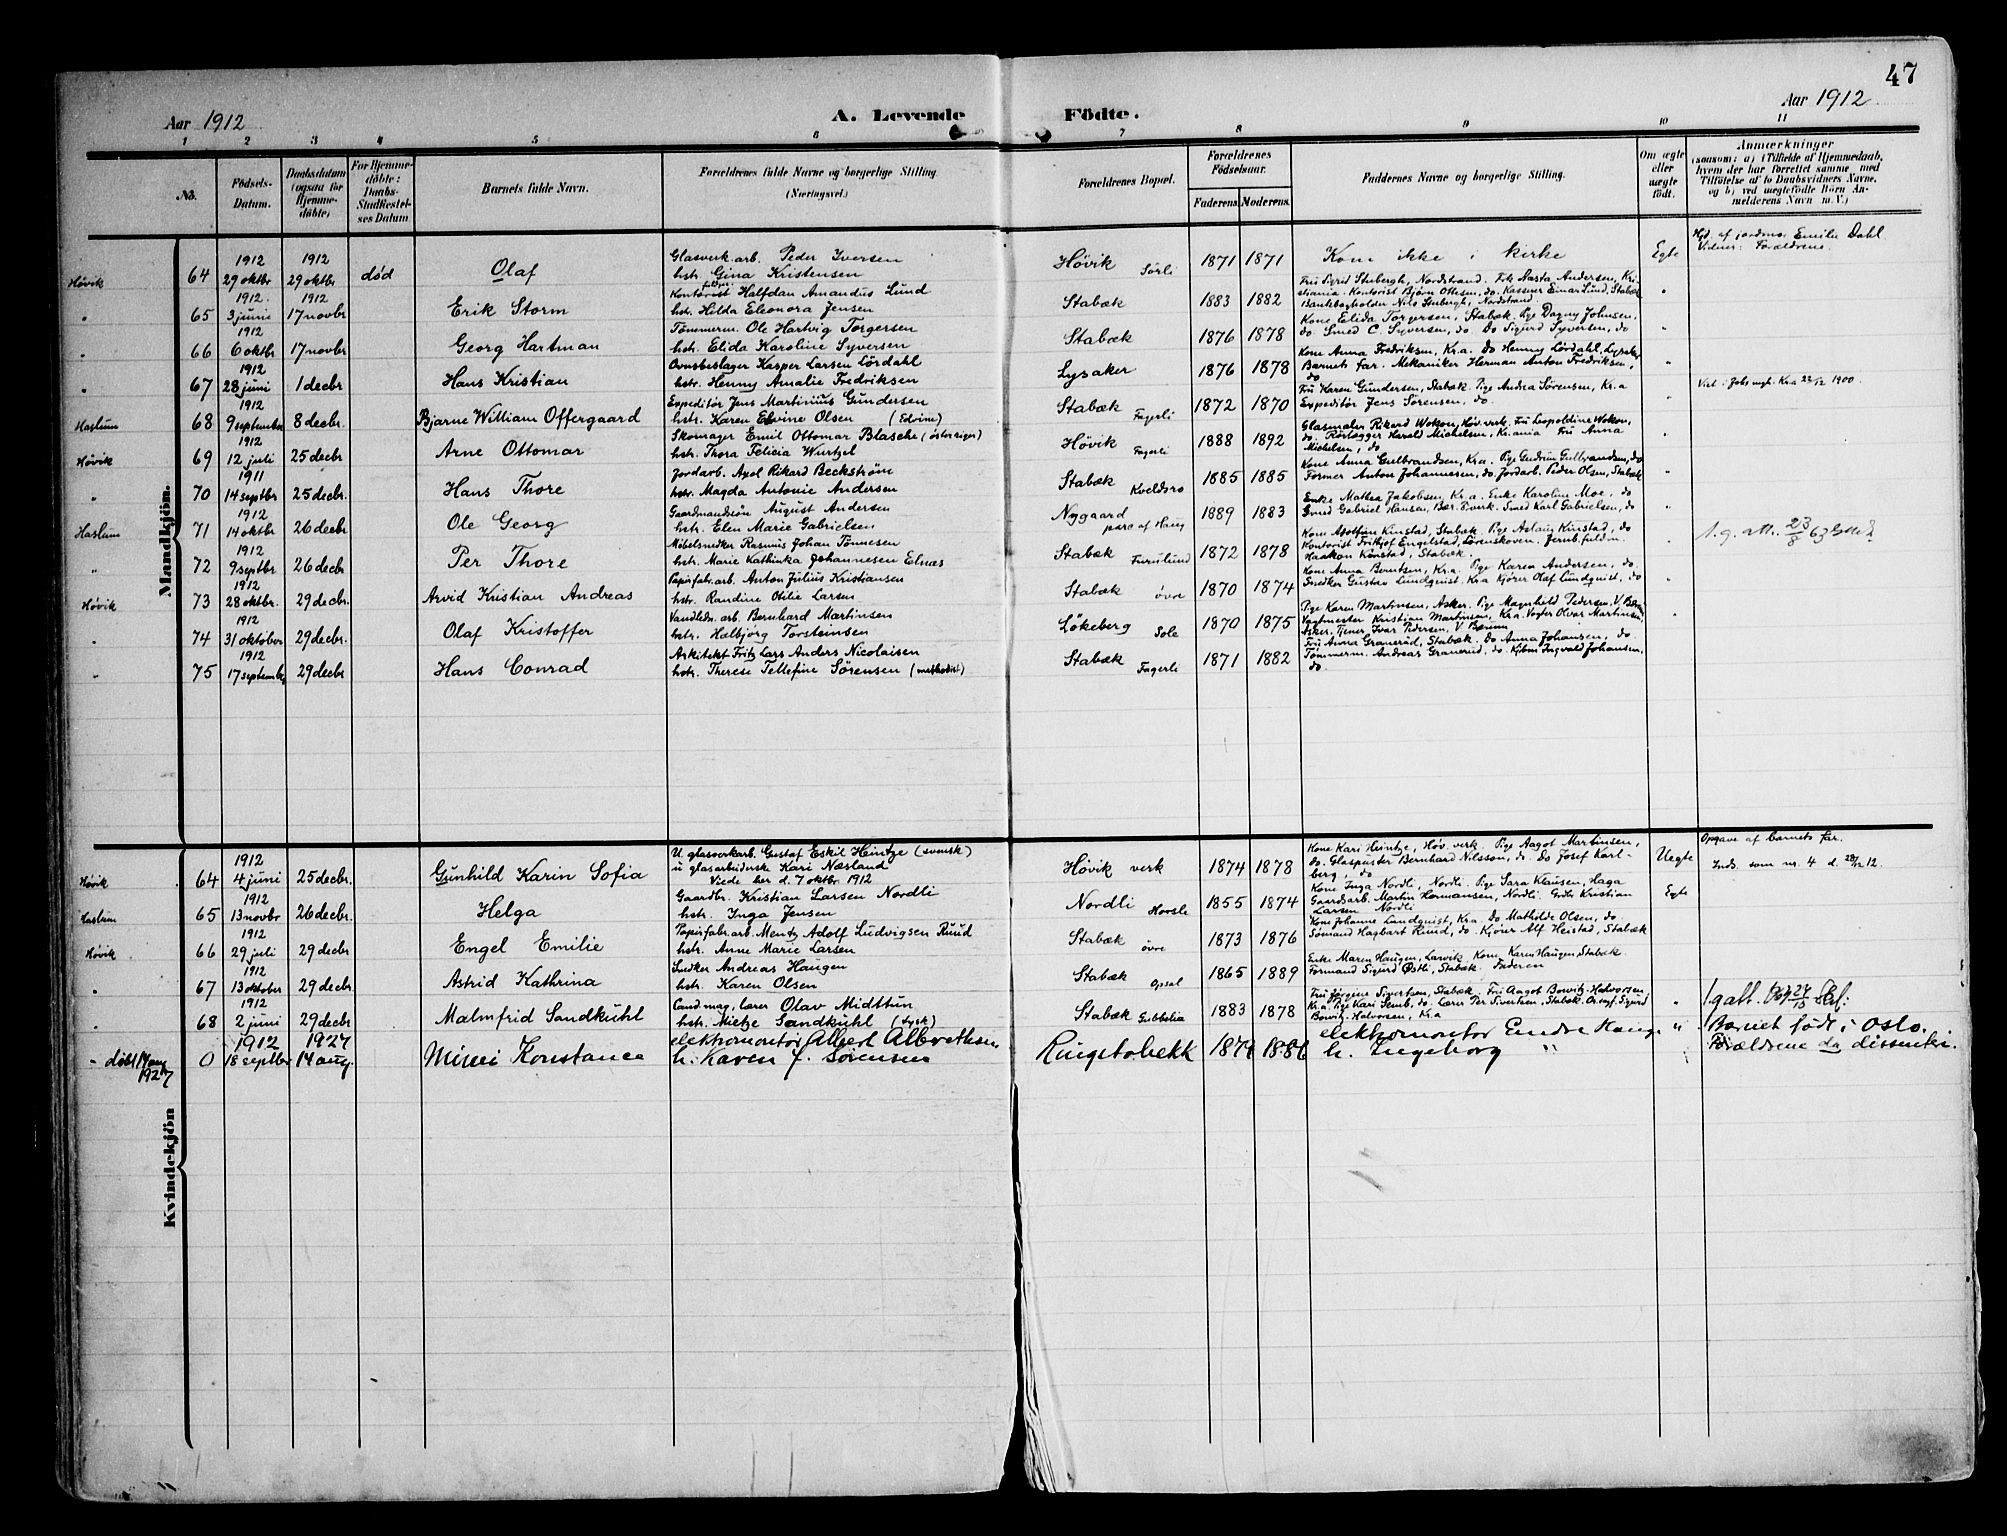 47
Aar 1912
A. Levende Födte.
Aar 1912
1 2 3 4 5 6 7 8 9 10 11
No.
Födsels-Datum.
Daabsdatum (ogsaa for Hjemmedöbte)
For Hjemmedöbte: Daabs-Stadfæstelses Datum
Barnets fulde Navn.
Forældrenes fulde Navne og borgerlige Stilling. (Næringsvei.)
Forældrenes Bopæl.
Forældrenes Födselsaar.
Faderens. Moderens.
Faddernes Navne og borgerlige Stilling.
Om ægte eller uægte födt.
Anmærkninger (saasom: a) i Tilfælde af Hjemmedaab, hvem der har forrettet samme, med Tilföielse af to Daabsvidners Navne, og b) ved uægtefödte Börn Anmelderens Navn m. V.)
Mandkjön.
Høvik 64 1912 29 oktbr 1912 29 oktbr død Olaf
Glasverk.arb. Peder Iversen
hstr. Gina Kristensen
Høvik Sörli 1871 1871 Kom ikke i kirke Egte
Hjd. af jordmor Emilie Dahl
Vidner: Forældrene.
" 65 1912 3 junii 1912 17 novbr Erik Storm
Kontorist Halfdan Amandus Lund
hstr. Hilda Eleonora Jensen
Stabæk 1883 1882
Fru Sigrid Stubergh, Nordstrand. Frk Aasta Andersen, Kri
stiania. Kontorist Björn Ottesen, do. Kasserer Einar Lund, Stabæk
Bankbogholder Nils Stubergh, Nordstrand. "
" 66 1912 6 oktbr 17 novbr Georg Hartman
Tömmerm. Ole Hartvig Torgersen
hstr. Elida Karoline Syversen
Stabæk 1876 1878
Kone Elida Torgersen, Stabæk. Pige Dagny Johnsen,
do. Smed C. Syversen, do. Do Sigurd Syversen, do "
" 67 1912 28 juni 1 decbr Hans Kristian
Ovnsbeslager Kasper Larsen Lördahl
hstr. Henny Amalie Fredriksen
Lysaker 1876 1878
Kone Anna Fredriksen, Kr.a. Do Henny Lördahl, Lysaker
Barnets far. Mekaniker Herman Anton Fredriksen,
do "
Haslum 68 1912 9 september 8 decbr. Bjarne William Offergaard
Expeditör Jens Martinius Gundersen
hstr. Karen Elvine Olsen (Edvine)
Stabæk Fagerli 1872 1870
Fru Karen Gundersen, Stabæk. Pige Andrea Sörensen, Kr.a
Expeditör Jens Sörensen, do. "
Høvik 69 1912 12 juli 25 decbr Arne Ottomar
Skomager Emil Ottomar Blasche (österriger)
hstr. Thora Felicia Wurtzel
Høvik Fagerli 1888 1892
Glasmaler Rikard Wokson, Høv.verk. Fru Leopoldine Wokson,
do. Rörlægger Harald Michelsen, Kr.ania Fru Anna
Michelsen, do "
" 70 1911 14 septbr 25 decbr. Hans Thore
Jordarb. Axel Rikard Beckström
hstr. Magda Antonie Andersen
Stabæk Kveldsro 1885 1885
Kone Anna Gulbrandsen, Kr.a. Pige Gudrun Gulbrandsen, do
Former Anton Johannesen, do. Jordarb. Peder Olsen, Stabæk "
Haslum 71 1912 14 oktbr 26 decbr Ole Georg
Gaardmandssön August Andersen
hstr. Elen Marie Gabrielsen
Nygaard parc af Haug 1889 1883
Enke Mathea Jakobsen, Kr.a. Enke Karoline Moe, do
Smed Gabriel Hansen, Bær. P.verk. Smed Karl Gabrielsen, do "
" 72 1912 9 septbr 26 decbr Per Thore
Möbelsnedker Rasmus Johan Tönnesen
hstr. Marie Kathinka Johannesen Elnæs
Stabæk Furulund 1872 1878
Kontorist Fridtjof Engelstad, Lörenskoven. Jernb.fuldm.
Haakon Kinstad, Stabæk. "
Høvik 73 1912 28 oktbr. 29 decbr. Arvid Kristian Andreas
Papirfabr.arb. Anton Julius Kristiansen
hstr. Randine Otilie Larsen
Stabæk övre 1870 1874
Kone Anna Berntsen, Kr.a. Pige Karen Andersen, do.
Snedker Gustav Lundquist, Kr.a Kjörer Olaf Lundquist, do "
" 74 1912 31 oktober 29 decbr. Olaf Kristoffer
Vandledn. arb. Bernhard Martinsen
hstr. Halbjörg Torsteinsen
Lökeberg Sole 1870 1875
Pige Karen Martinsen, Asker. Pige Magnhild Pedersen, V. Bærum
Vagtmester Kristian Martinsen, Kr.a. Vogter Oliver Martinsen,
Asker. Tjener Ivar Pedersen, V. Bærum "
" 75 1912 17 september 29 decbr. Hans Conrad
Arkitekt Fritz Lars Anders Nicolaisen
hstr. Therese Tellefine Sörensen (methodist)
Stabæk Fagerli 1871 1882
Fru Anna Granerud, Stabæk. Do Anna Johansen, do.
Tömmerm. Andreas Granerud, do. Kjöbm Ingvald Johansen,
do.
Kvindekjön
Høvik 64 1912 4 juni 25 decbr. Gunhild Karin Sofia
U. glasverkarb. Gustaf Eskil Heintze (svensk)
u glasarbeiderske Kari Næsland
Viede her d. 7 oktbr 1912
Høvik verk 1874 1878
Kone Kari Heintze, Høv. verk. Pige Aagot Martinsen,
do. Glaspuster Bernhard Nilsson, do. Do Josef Karl-
berg, do
Uegte
Opgave af barnets far.
Inds. som nr. 4 d. 28/12 12.
Haslum 65 1912 13 novbr 26 decbr. Helga
Gaardbr. Kristian Larsen Nordli
hstr. Inga Jensen
Nordli Horsle 1855 1874
Kone Inga Nordli, Nordli. Pige Sara Klausen, Haga
Gaardsarb. Martin Hermansen, Nordli. Grbr Kristian
Larsen Nordli
Egte
Høvik 66 1912 29 juli 29 decbr. Engel Emilie
Papirfabr. arb. Mentz Adolf Ludvigsen Ruud
hstr. Anne Marie Larsen
Stabæk övre 1873 1876
Kone Johanne Lundquist, Kr.a. Do Mathilde Olsen, do
Sömand Hagbart Ruud, do. Kjörer Alf Heistad, Stabæk
" 67 1912 13 oktober 29 decbr. Astrid Kathrina
Snedker Andreas Haugen
hstr. Karen Olsen
Stabæk Opsal 1865 1889
Enke Maren Haugen, Larvik. Kone Karen Haugen, Stabæk.
Formand Sigurd Östli, Stabæk. Faderen
" 68 1912 2 juni 29 decbr Malmfrid Sandkühl
Cand mag, lærer Olav Midttun
hstr. Mietze Sandkühl (tysk)
Stabæk Gubbelia 1883 1878
Fru Jögine Sivertsen, Stabæk. Fru Aagot Bowitz-Halvorsen,
Kr.a. Pige Kari Semb, do. Lærer Per Sivertsen, Stabæk. Sigurd
Bowitz-Halvorsen, Kr.a "
" döbt 14 aug 1927 0 1912 18 septbr 1927 14 aug. Mimi Konstance
elektromontör Albert Albrethsen
h. Karen f. Sørensen
Ringstabekk 1874 1886
elektromontør Endre Hauge
h. Ingeborg "
"
Barnet födt i Oslo.
Forældrene da dissentere.